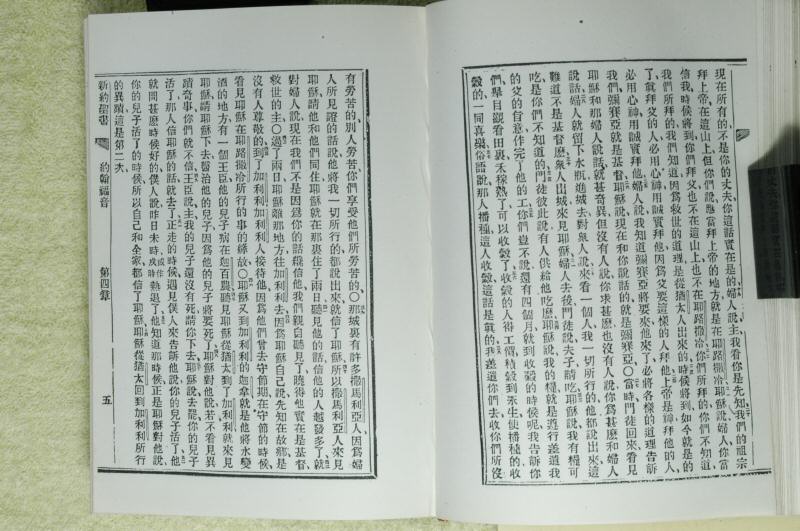 現在所有的不是你的丈夫你這話實在是的婦人說主我看你是先知我們的祖宗
拜上帝在這山上但你們說應當拜上帝的地方就是在耶路撒冷耶穌說婦人你當
信我時候將到你們拜父也不在這山上也不在耶路撒冷你們所拜的你們不知道
我們所拜的我們知道因爲救世的道理是從猶太人出來的時候將到如今就是的
了眞拜父的人必用心神用誠實拜他因爲父要這樣的人拜他上帝是神拜他的人
必用心神用誠實拜他婦人說我知道彌賽亞將要來他來了必將各樣的道理告訴
我們彌賽亞就是基督耶穌說現在和你說話的就是彌賽亞○當時門徒回來看見
耶穌和那婦人說話就甚奇異但沒有人說你求甚麽也沒有人說你爲甚麽和婦人
說話婦人就留下水瓶進城去對衆人說來看一個人我一切所行的他都說出來這
難道不是基督麽衆人出城來見耶穌婦人去後門徒說夫子請吃耶穌說我有糧可
吃是你們不知道的門徒彼此說有人供給他吃麽耶穌說我的糧就是遵行差遣我
的父的旨意作完了他的工你們豈不說還有四個月就到收穀的時候呢我告訴你
們舉目觀看田裏禾稼熟了可以收穀了收穀的人得工價積穀到永生使播種的收
穀的一同喜樂俗語說那人播種這人收穀這話是眞的我差遣你們去收你們所沒
有勞苦的別人勞苦你們享受他們所勞苦的○那城裏有許多撒馬利亞人因爲婦
人所見證的話說他將我一切所行的都說出來就信了耶穌所以撒馬利亞人來見
耶穌請他和他們同住耶穌就在那裏住了兩日聽見他的話信他的人越發多了就
對婦人說現在我們不是因爲你的話纔信他我們親自聽見了曉得他實在是基督
救世的主○過了兩日耶穌離那地方往加利利去因爲耶穌自己說先知在故鄉是
沒有人尊敬的到了加利利加利利人接待他因爲他們曾去守節期在守節的時候
看見耶穌在耶路撒冷所行的事的緣故○耶穌又到加利利的迦拿就是他將水變
酒的地方有一個王臣他的兒子病在迦百農聽見耶穌從猶太到了加利利就來見
耶穌請耶穌下去醫治他的兒子因爲他的兒子將要死了耶穌對他說若不看見異
蹟奇事你們就不信王臣說主我的兒子還沒有死請你下去耶穌說去罷你的兒子
活了那人信耶穌的話就去了正走的時候遇見僕人來告訴他說你的兒子活了他
就問甚麽時候好的僕人說昨日未時或作戌時熱退了他知道那時候正是耶穌對他說
你的兒子活了的時候所以自己和全家都信了耶穌耶穌從猶太回到加利利所行
的異蹟這是第二次
新約聖書 約翰福音 第四章 五